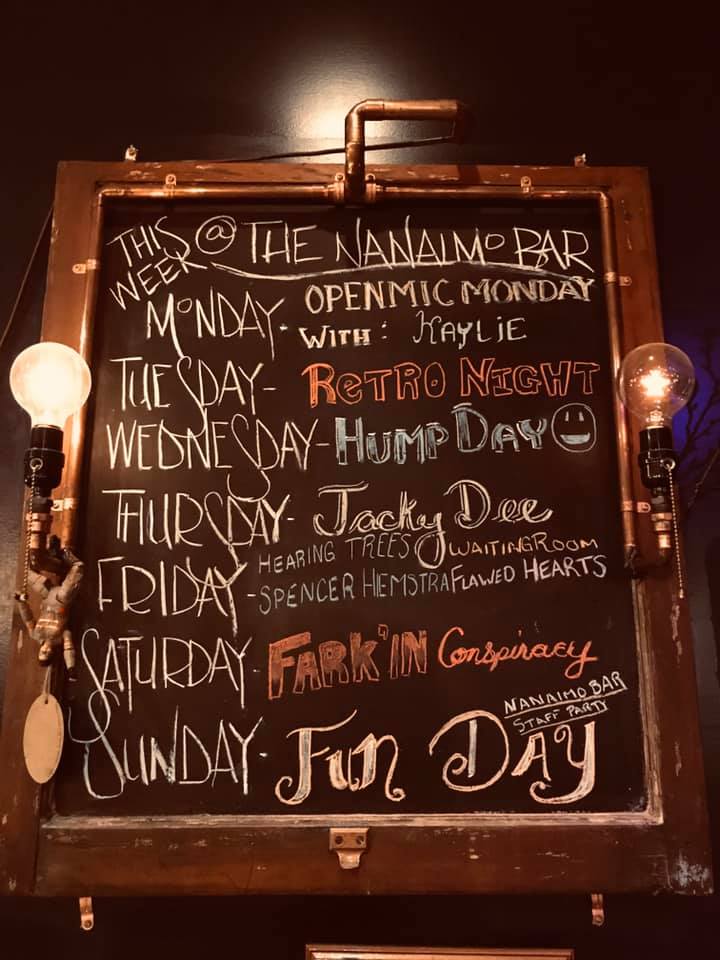 THIS WEEK @ THE NANAIMO BAR
MONDAY- OPENMIC MONDAY
WITH: KAYLIE
TUESDAY- RETRO NIGHT
WEDNESDAY- HUMP DAY
THURSDAY- Jacky Dee
HEARING TREES WAITING ROOM
FRIDAY- SPENCER HIEMSTRA FLAWED HEARTS
SATURDAY- FARK'IN Conspiracy
NANAIMO BAR
STAFF PARTY
SUNDAY- FUN DAY